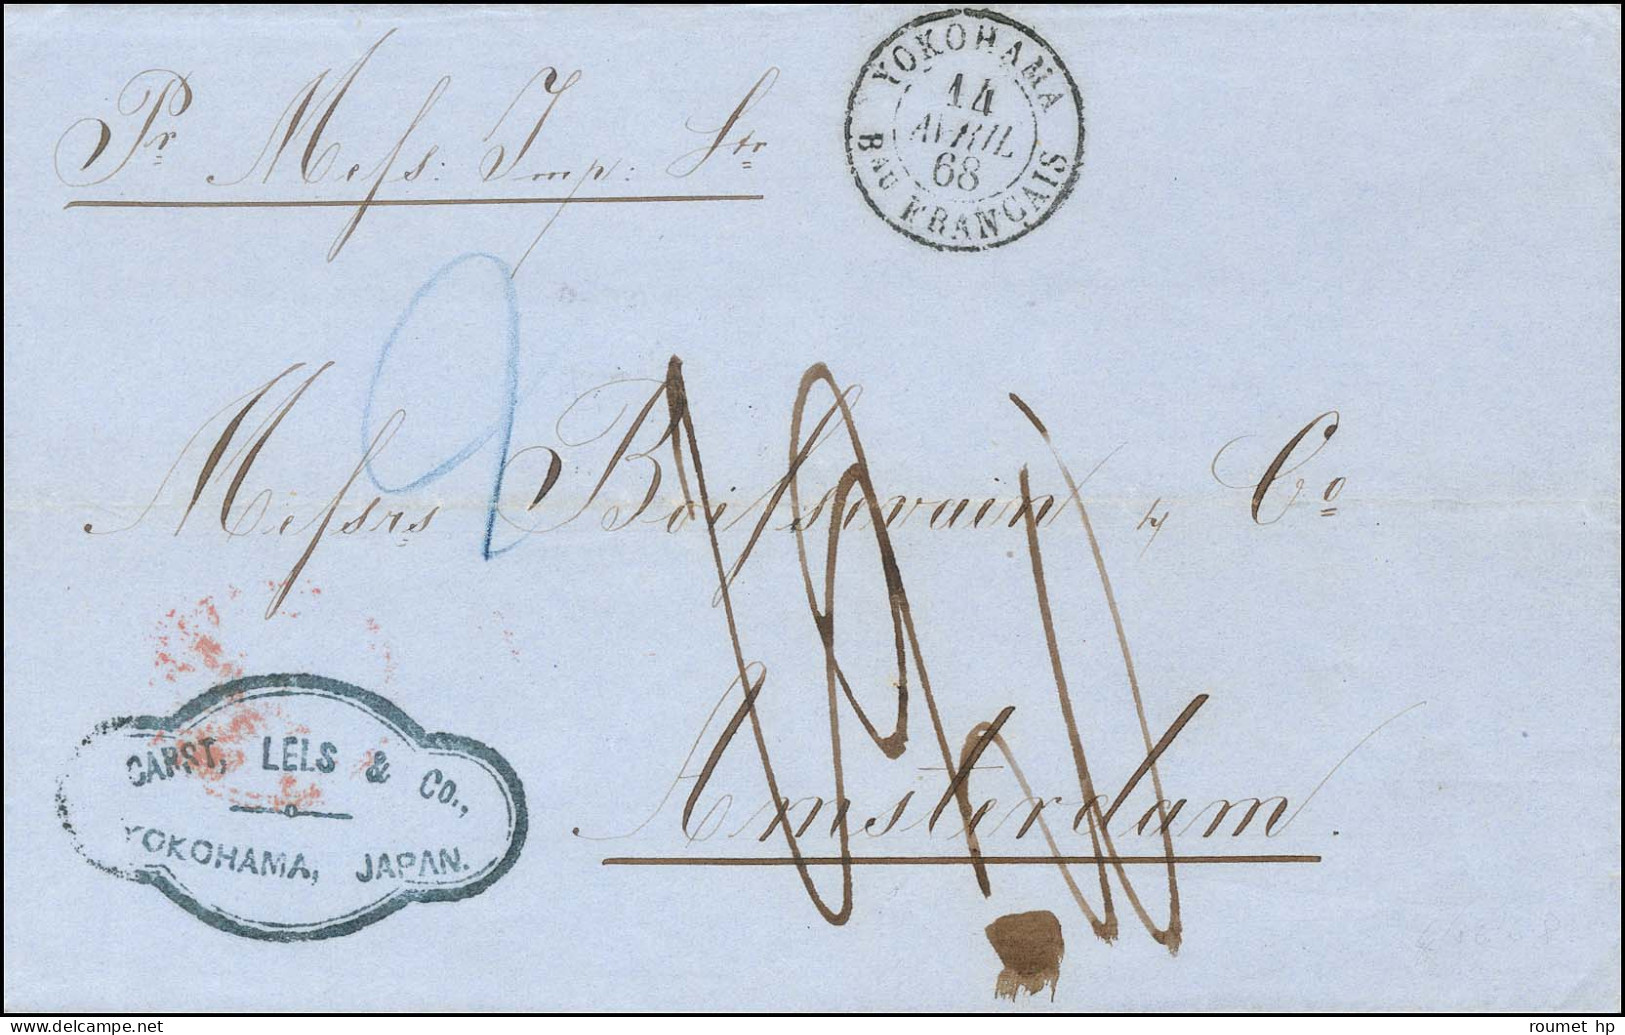 YOKOHAMA
14
AVRIL
68
Bau FRANCAIS
Pr Mess: Imp: Str
Messrs Boissevain & Co
Amsterdam.
CARST, LELS & Co.,
YOKOHAMA, JAPAN.
www.delcampe.net
roumet hp